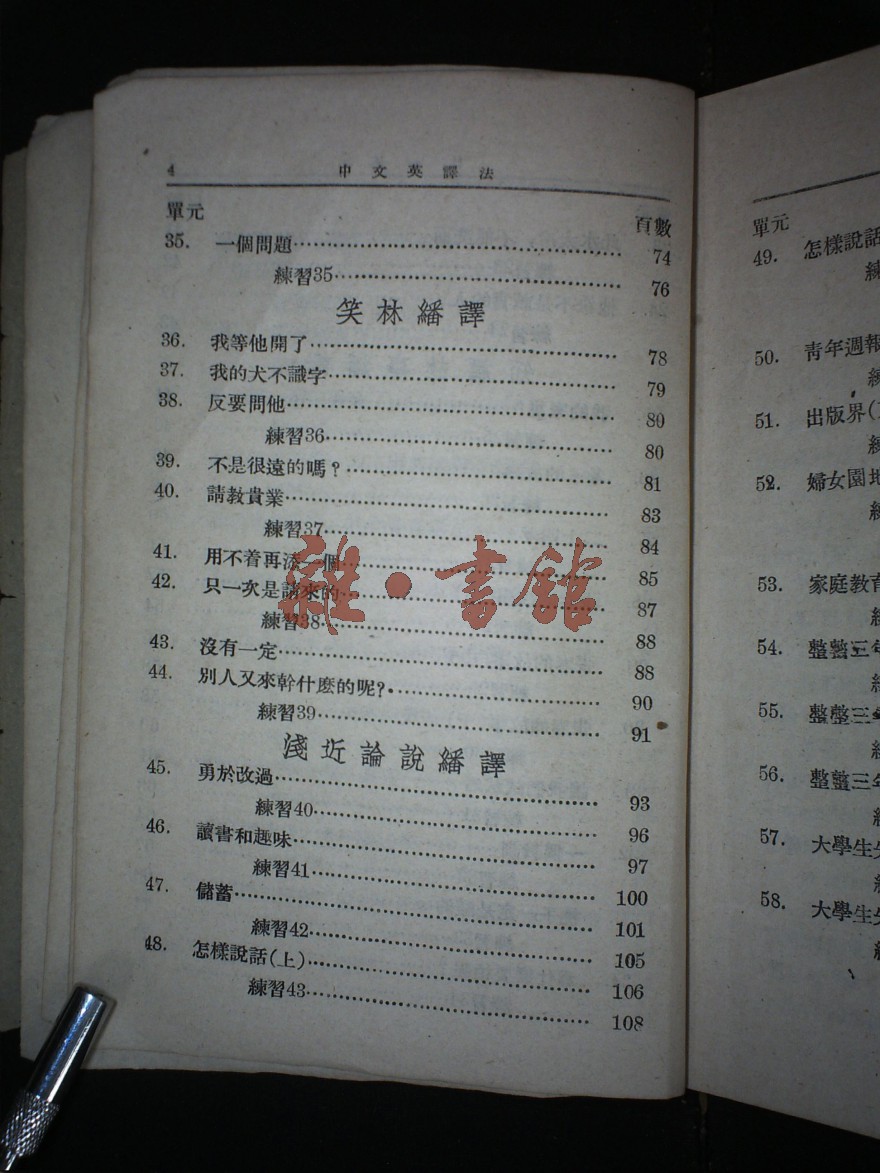 4 中文英譯法
單元 頁數
35. 一個問題 74
練習35 76
笑林繙譯
36. 我等他開了 78
37. 我的犬不識字 79
38. 反要問他 80
練習36 80
39. 不是很遠的嗎？ 81
40. 請教貴業 83
練習37 84
41. 用不着再添一個 85
42. 只一次是請來的 87
練習38 88
43. 沒有一定 88
44. 別人又來幹什麽的呢？ 90
練習39 91
淺近論說繙譯
45. 勇於改過 93
練習40 96
46. 讀書和趣味 97
練習41 100
47. 儲蓄 101
練習42 105
48. 怎樣說話(上) 106
練習43 108
雜·書館
單元
49. 怎樣說話
練
50. 青年週報
練
51. 出版界(
練
52. 婦女園地
練
53. 家庭教育
練
54. 整整三年
練
55. 整整三年
練
56. 整整三年
練
57. 大學生
練
58. 大學生
練